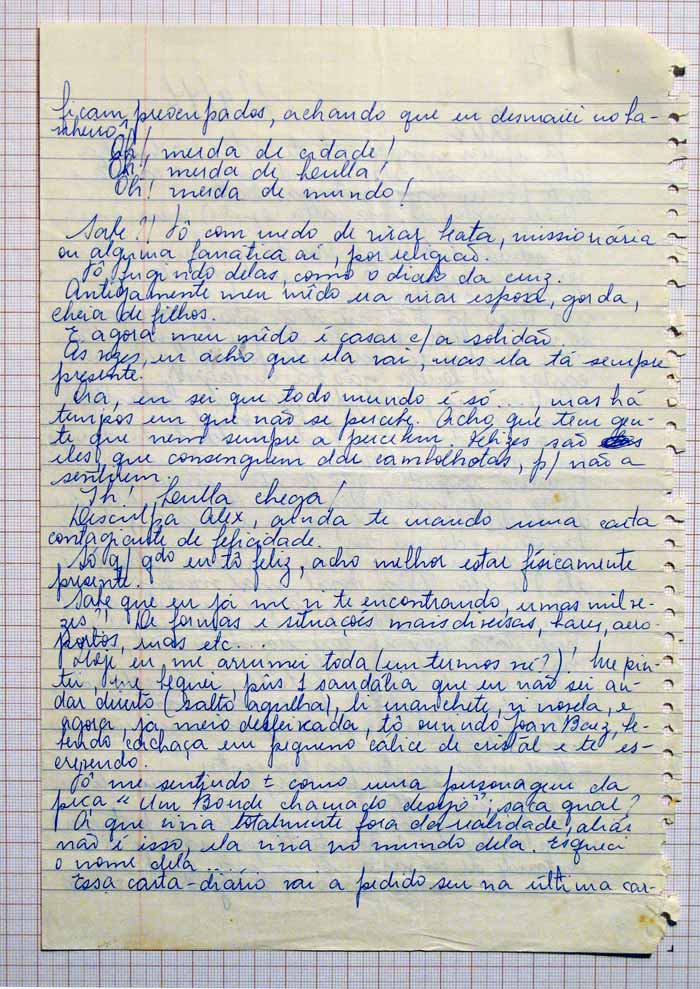 ficam preocupados, achando que eu desmaiei no ba-
nheiro?!
Oh! merda de cidade!
Oh! merda de
Oh! merda de mundo!
Sabe?! Tô com medo de virar beata, missionária
ou alguma fanática aí, por religião.
Tô fugindo delas, como o diabo da cruz.
Antigamente meu mêdo era virar esposa, gorda,
cheia de filhos.
E agora meu mêdo é casar c/ a solidão.
Às vezes, eu acho que ela vai, mas ela tá sempre
presente.
Ora, eu sei que todo mundo é só..., mas há
tempos em que não se percebe. Acho que tem gen-
te que nem sempre a percebem. Felizes são
eles, que conseguem dar cambolhotas, p/ não a
sentirem.
Ih! chega!
Desculpa Alex, ainda te mando uma carta
contagiante de felicidade.
Só q/ qdo eu tô feliz, acho melhor estar físicamente
presente.
Sabe que eu já me vi te encontrando, umas mil ve-
zes?! De formas e situações mais diversas, bares, aero-
portos, ruas etc...
Hoje eu me arrumei toda (em termos né?)! Me pin-
tei, me, pûs 1 sandália que eu não sei an-
dar direito (salto agulha), li manchete, vi novela, e
agora, já meio desleixada, tô ouvindo Joan Baez, be-
bendo cachaça em pequeno cálice de cristal e te es-
crevendo.
Tô me sentindo ± como uma personagem da
peça "Um Bonde chamado desejo"; saca qual?
A que vivia totalmente fora da realidade, aliás
não é isso, ela vivia no mundo dela. Esqueci
o nome dela...
Essa carta-diário vai a pedido seu na última car-